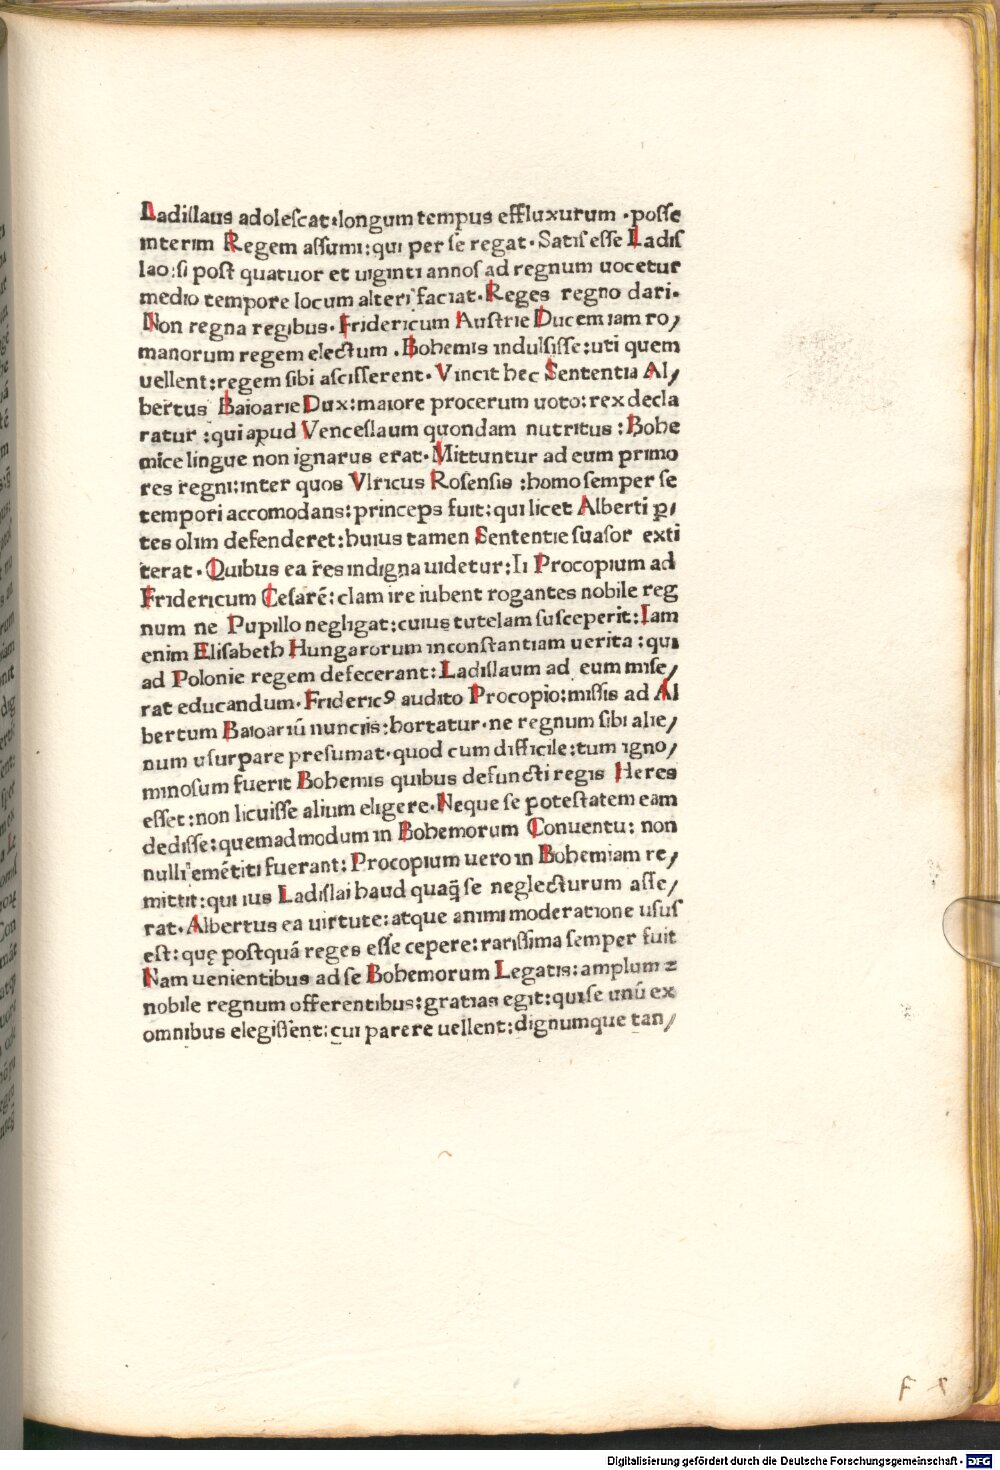 Ladiſlaus adoleſcat:longum tempus effluxurum ·poſſe
interim Regem aſſumi:qui per ſe regat·Satiſ eſſe Ladiſ
lao:ſi poſt quatuor et uiginti annoſ ad regnum uocetur
medio tempore locum alteri faciat·Reges regno dari·
Non regna regibus·Fridericum Auſtrie Ducem iam ro/
manorum regem electum .Bohemis indulſiſſe:uti quem
uellent:regem ſibi aſciſſerent·Vincit hec Sententia Al/
bertus Baioarie Dux:maiore procerum uoto:rex decla
ratur :qui apud Venceſlaum quondam nutritus :Bohe
mice lingue non ignarus erat·Mittuntur ad eum primo
res regni:inter quos Vlricus Roſenſis :homo ſemper ſe
tempori accomodans:princeps fuit:qui licet Alberti ꝑ/
tes olim defenderet:huius tamen Sententie ſuaſor exti
terat·Quibus ea res indigna uidetur:Ii Procopium ad
Fridericum Ceſarē:clam ire iubent rogantes nobile reg
num ne Pupillo negligat:cuius tutelam ſuſceperit:Iam
enim Eliſabeth Hungarorum inconſtantiam uerita :qui
ad Polonie regem defecerant:Ladiſlaum ad eum miſe/
rat educandum·Fridericꝰ audito Procopio:miſſis ad Al
bertum Baioariū nunciis:hortatur·ne regnum ſibi alie/
num uſurpare preſumat·quod cum difficile:tum igno/
minoſum fuerit Bohemis quibus defuncti regis Heres
eſſet:non licuiſſe alium eligere·Neque ſe poteſtatem eam
dediſſe:quemadmodum in Bohemorum Conuentu: non
nulli emētiti fuerant:Procopium uero in Bohemiam re/
mittit:qui ius Ladiſlai haud quaq̄ ſe neglecturum aſſe/
rat·Albertus ea uirtute:atque animi moderatione uſuſ
eſt:quę poſtquā reges eſſe cepere:rariſſima ſemper fuit
Nam uenientibus ad ſe Bohemorum Legatis:amplum ⁊
nobile regnum offerentibus:gratias egit:qui ſe unū ex
omnibus elegiſſent:cui parere uellent:dignumque tan/
Digitalisierung gefördert durch die Deutsche Forschungsgemeinschaft - DFG